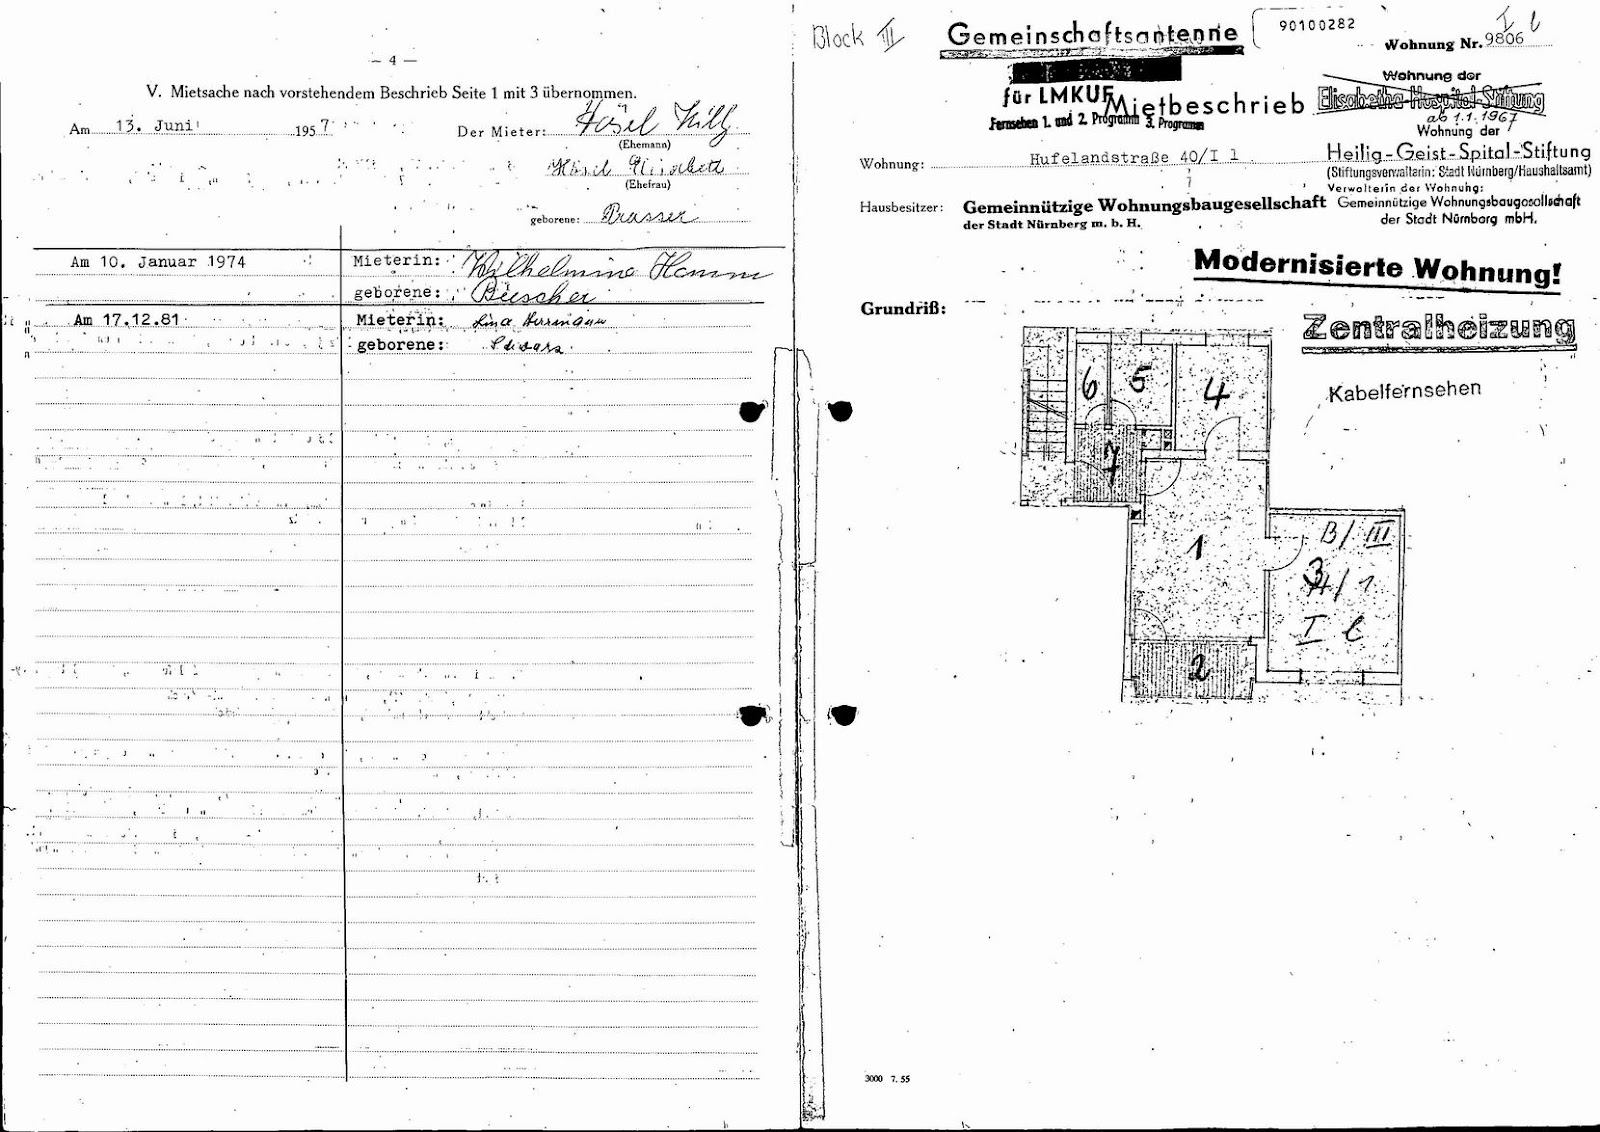 — 4 —
V. Mietsache nach vorstehendem Beschrieb Seite 1 mit 3 übernommen.
Am 13. Juni 1957 Der Mieter: Hösel Willy
(Ehemann)
Hösel Elisabeth
(Ehefrau)
geborene: Prasser
Am 10. Januar 1974 Mieterin: Wilhelmine Hamm
geborene: Büscher
Am 17.12.81 Mieterin: Lina Herrmann
geborene:
Block III
Gemeinschaftsantenne
für LMKUF
Fernsehen 1. und 2. Programm 3. Programm
90100282
Wohnung Nr. 9806 I l
Mietbeschrieb
Wohnung der
Elisabetha-Hospital-Stiftung
ab 1.1.1967
Wohnung der
Heilig-Geist-Spital-Stiftung
(Stiftungsverwalterin: Stadt Nürnberg/Haushaltsamt)
Verwalterin der Wohnung:
Gemeinnützige Wohnungsbaugesellschaft
der Stadt Nürnberg mbH.
Wohnung: Hufelandstraße 40/I l
Hausbesitzer: Gemeinnützige Wohnungsbaugesellschaft
der Stadt Nürnberg m. b. H.
Modernisierte Wohnung!
Grundriß:
Zentralheizung
Kabelfernsehen
6 5 4
7
1
B/ III
3
I l
2
3000 7. 55